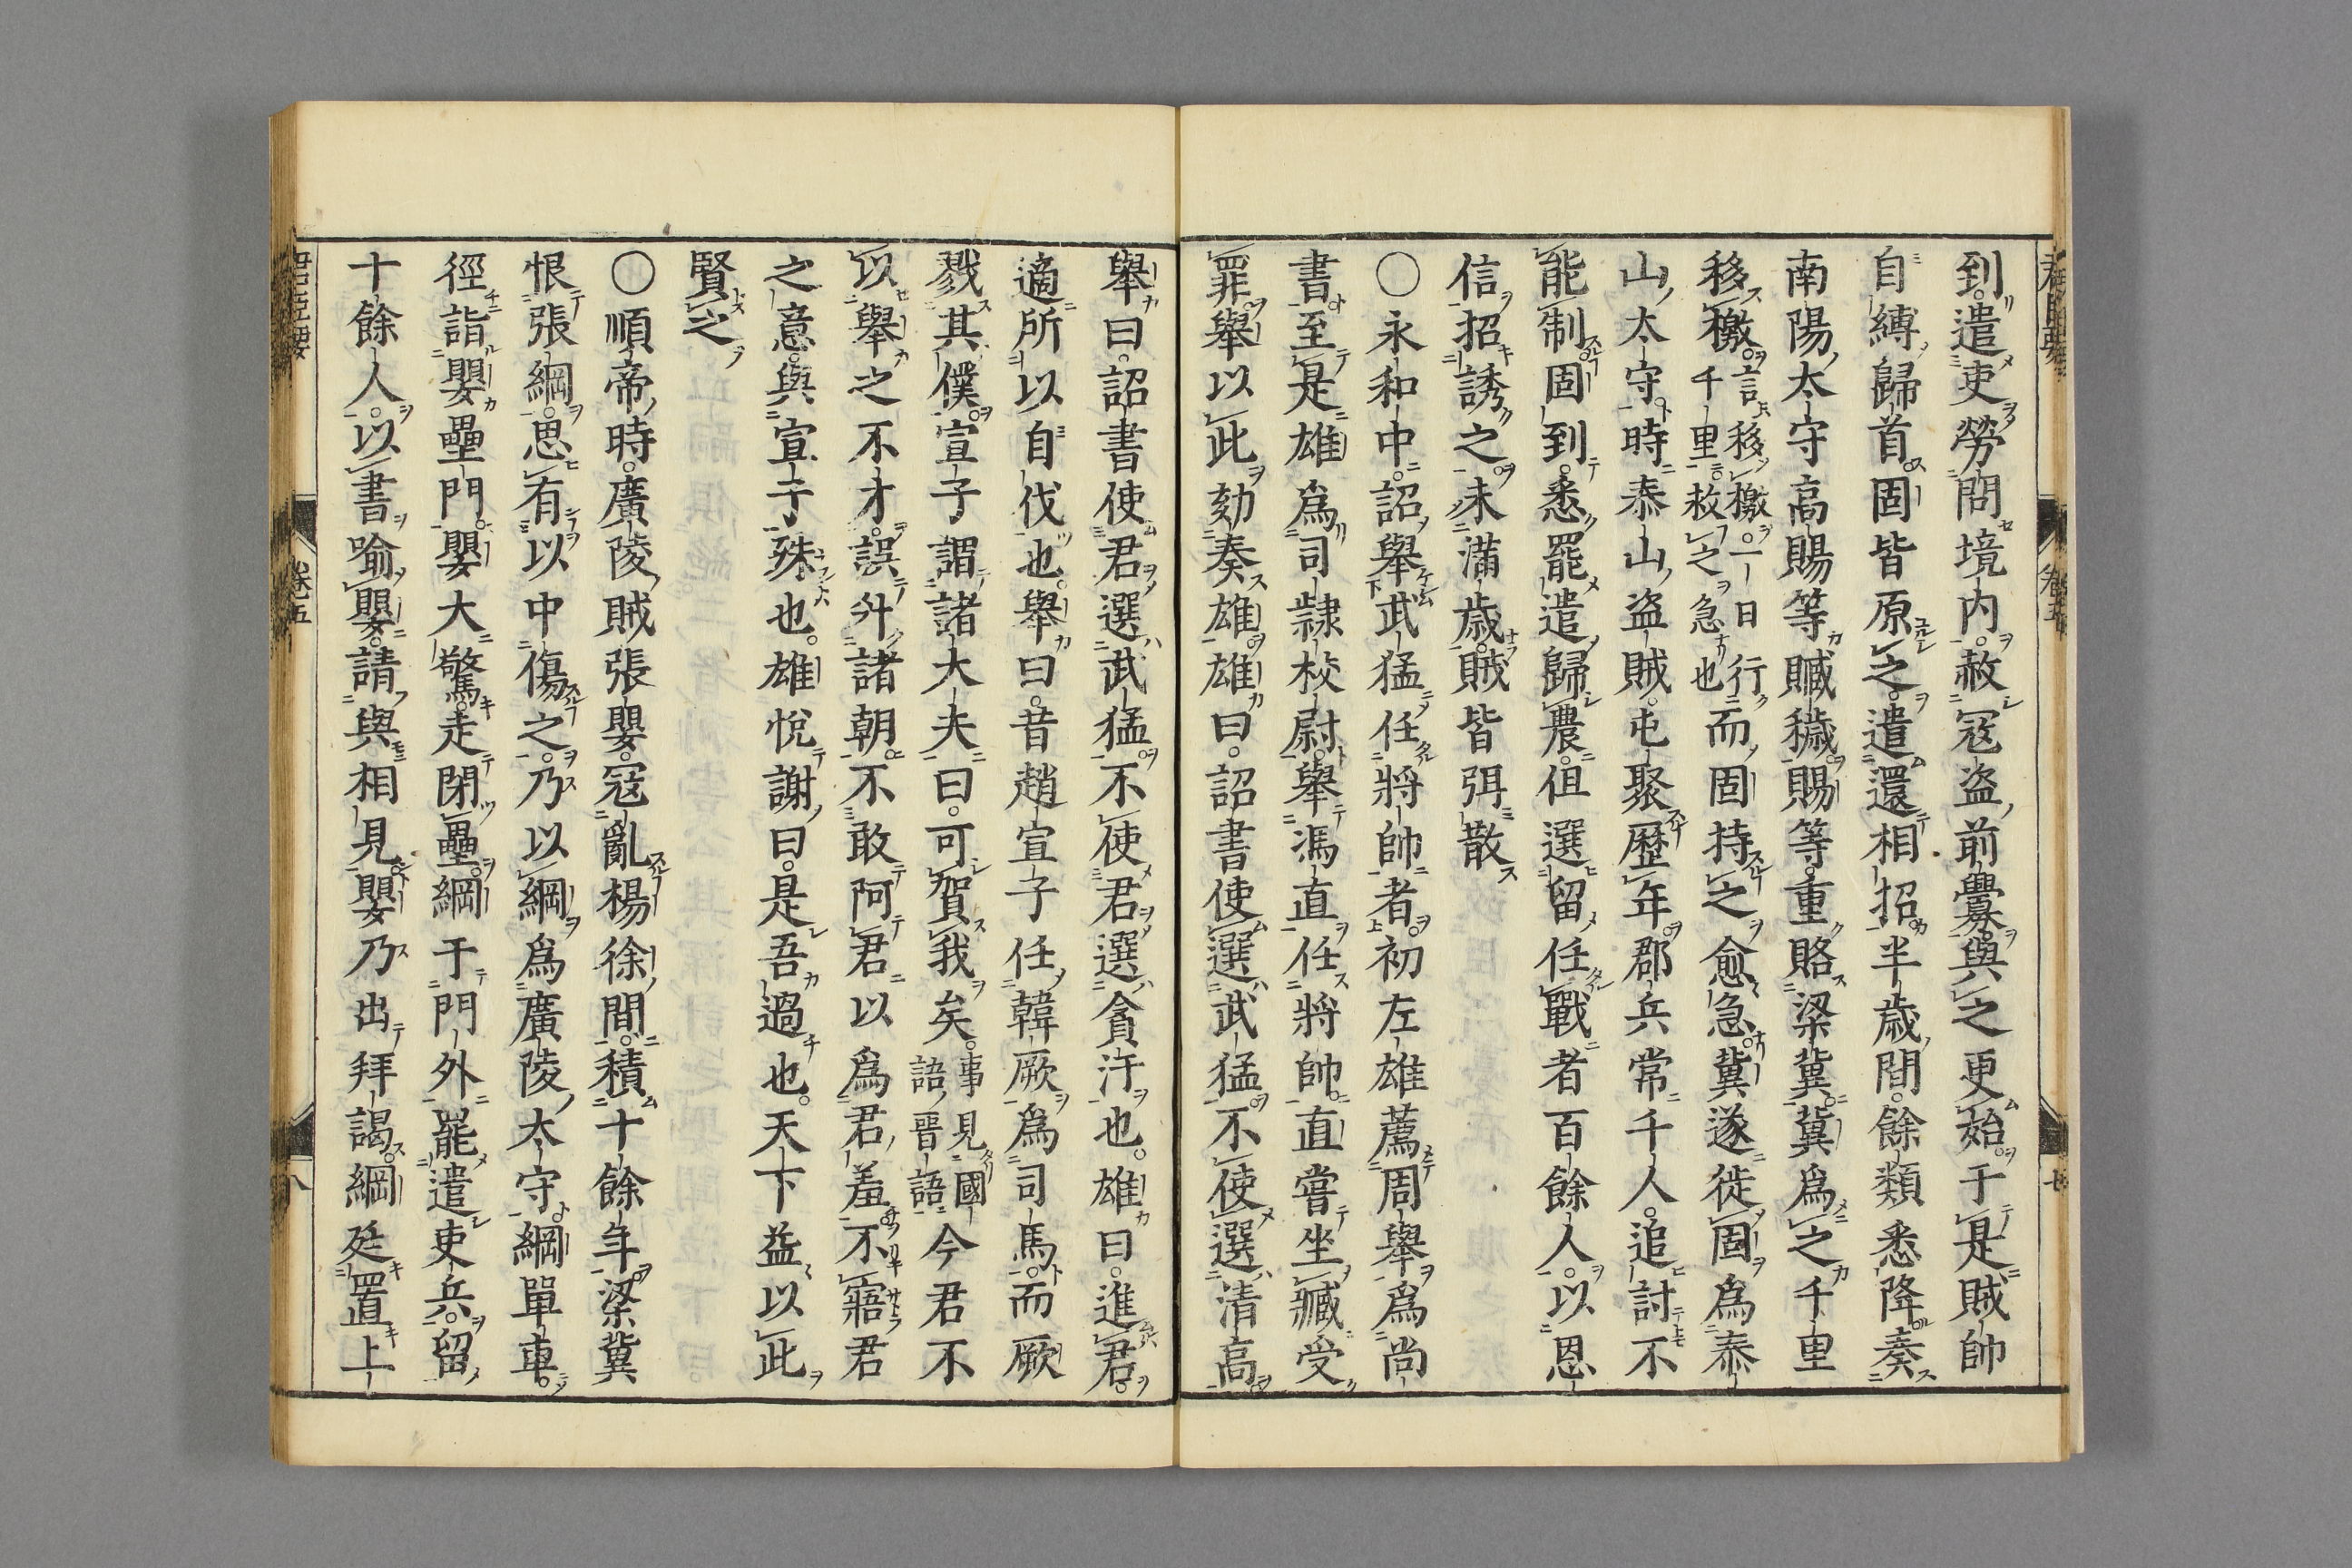 到遣吏勞問境內赦寇盜前釁與之更始于是賊帥
自縛歸首固皆原之遣還相招半歲間餘類悉降奏
南陽太守高賜等贓穢賜等重賂梁冀冀爲之千里
移檄言移檄一日行千里救之急也而固持之愈急冀遂徙固爲泰
山太守時泰山盜賊屯聚歷年郡兵常千人追討不
能制固到悉罷遣歸農但選留任戰者百餘人以恩
信招誘之未滿歲賊皆弭散
〇永和中詔舉武猛任將帥者初左雄薦周舉爲尚
書至是雄爲司隸校尉舉馮直任將帥直嘗坐臧受
罪舉以此劾奏雄雄曰詔書使選武猛不使選清高
舉曰詔書使君選武猛不使君選貪汙也雄曰進君
適所以自伐也舉曰昔趙宣子任韓厥爲司馬而厥
戮其僕宣子謂諸大夫曰可賀我矣事見國語晉語今君不
以舉之不才誤升諸朝不敢阿君以爲君羞不寤君
之意與宣子殊也雄悅謝曰是吾過也天下益以此
賢之
〇順帝時廣陵賊張嬰寇亂楊徐間積十餘年梁冀
恨張綱思有以中傷之乃以綱爲廣陵太守綱單車
徑詣嬰壘門嬰大驚走閉壘綱于門外罷遣吏兵留
十餘人以書喻嬰請與相見嬰乃出拜謁綱延置上
卷五
八